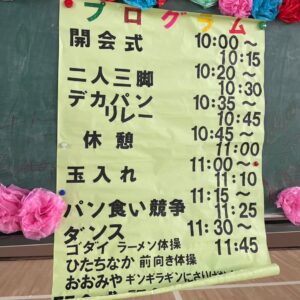 プログラム
開会式 10:00～
10:15
二人三脚 10:20～
10:30
デカパン 10:35～
リレー 10:45
休憩 10:45～
11:00
玉入れ 11:00～
11:10
パン食い競争 11:15～
11:25
ダンス 11:30～
ゴダイ ラーメン体操 11:45
ひたちなか 前向き体操
おおみや ギンギラギンにさりげなく